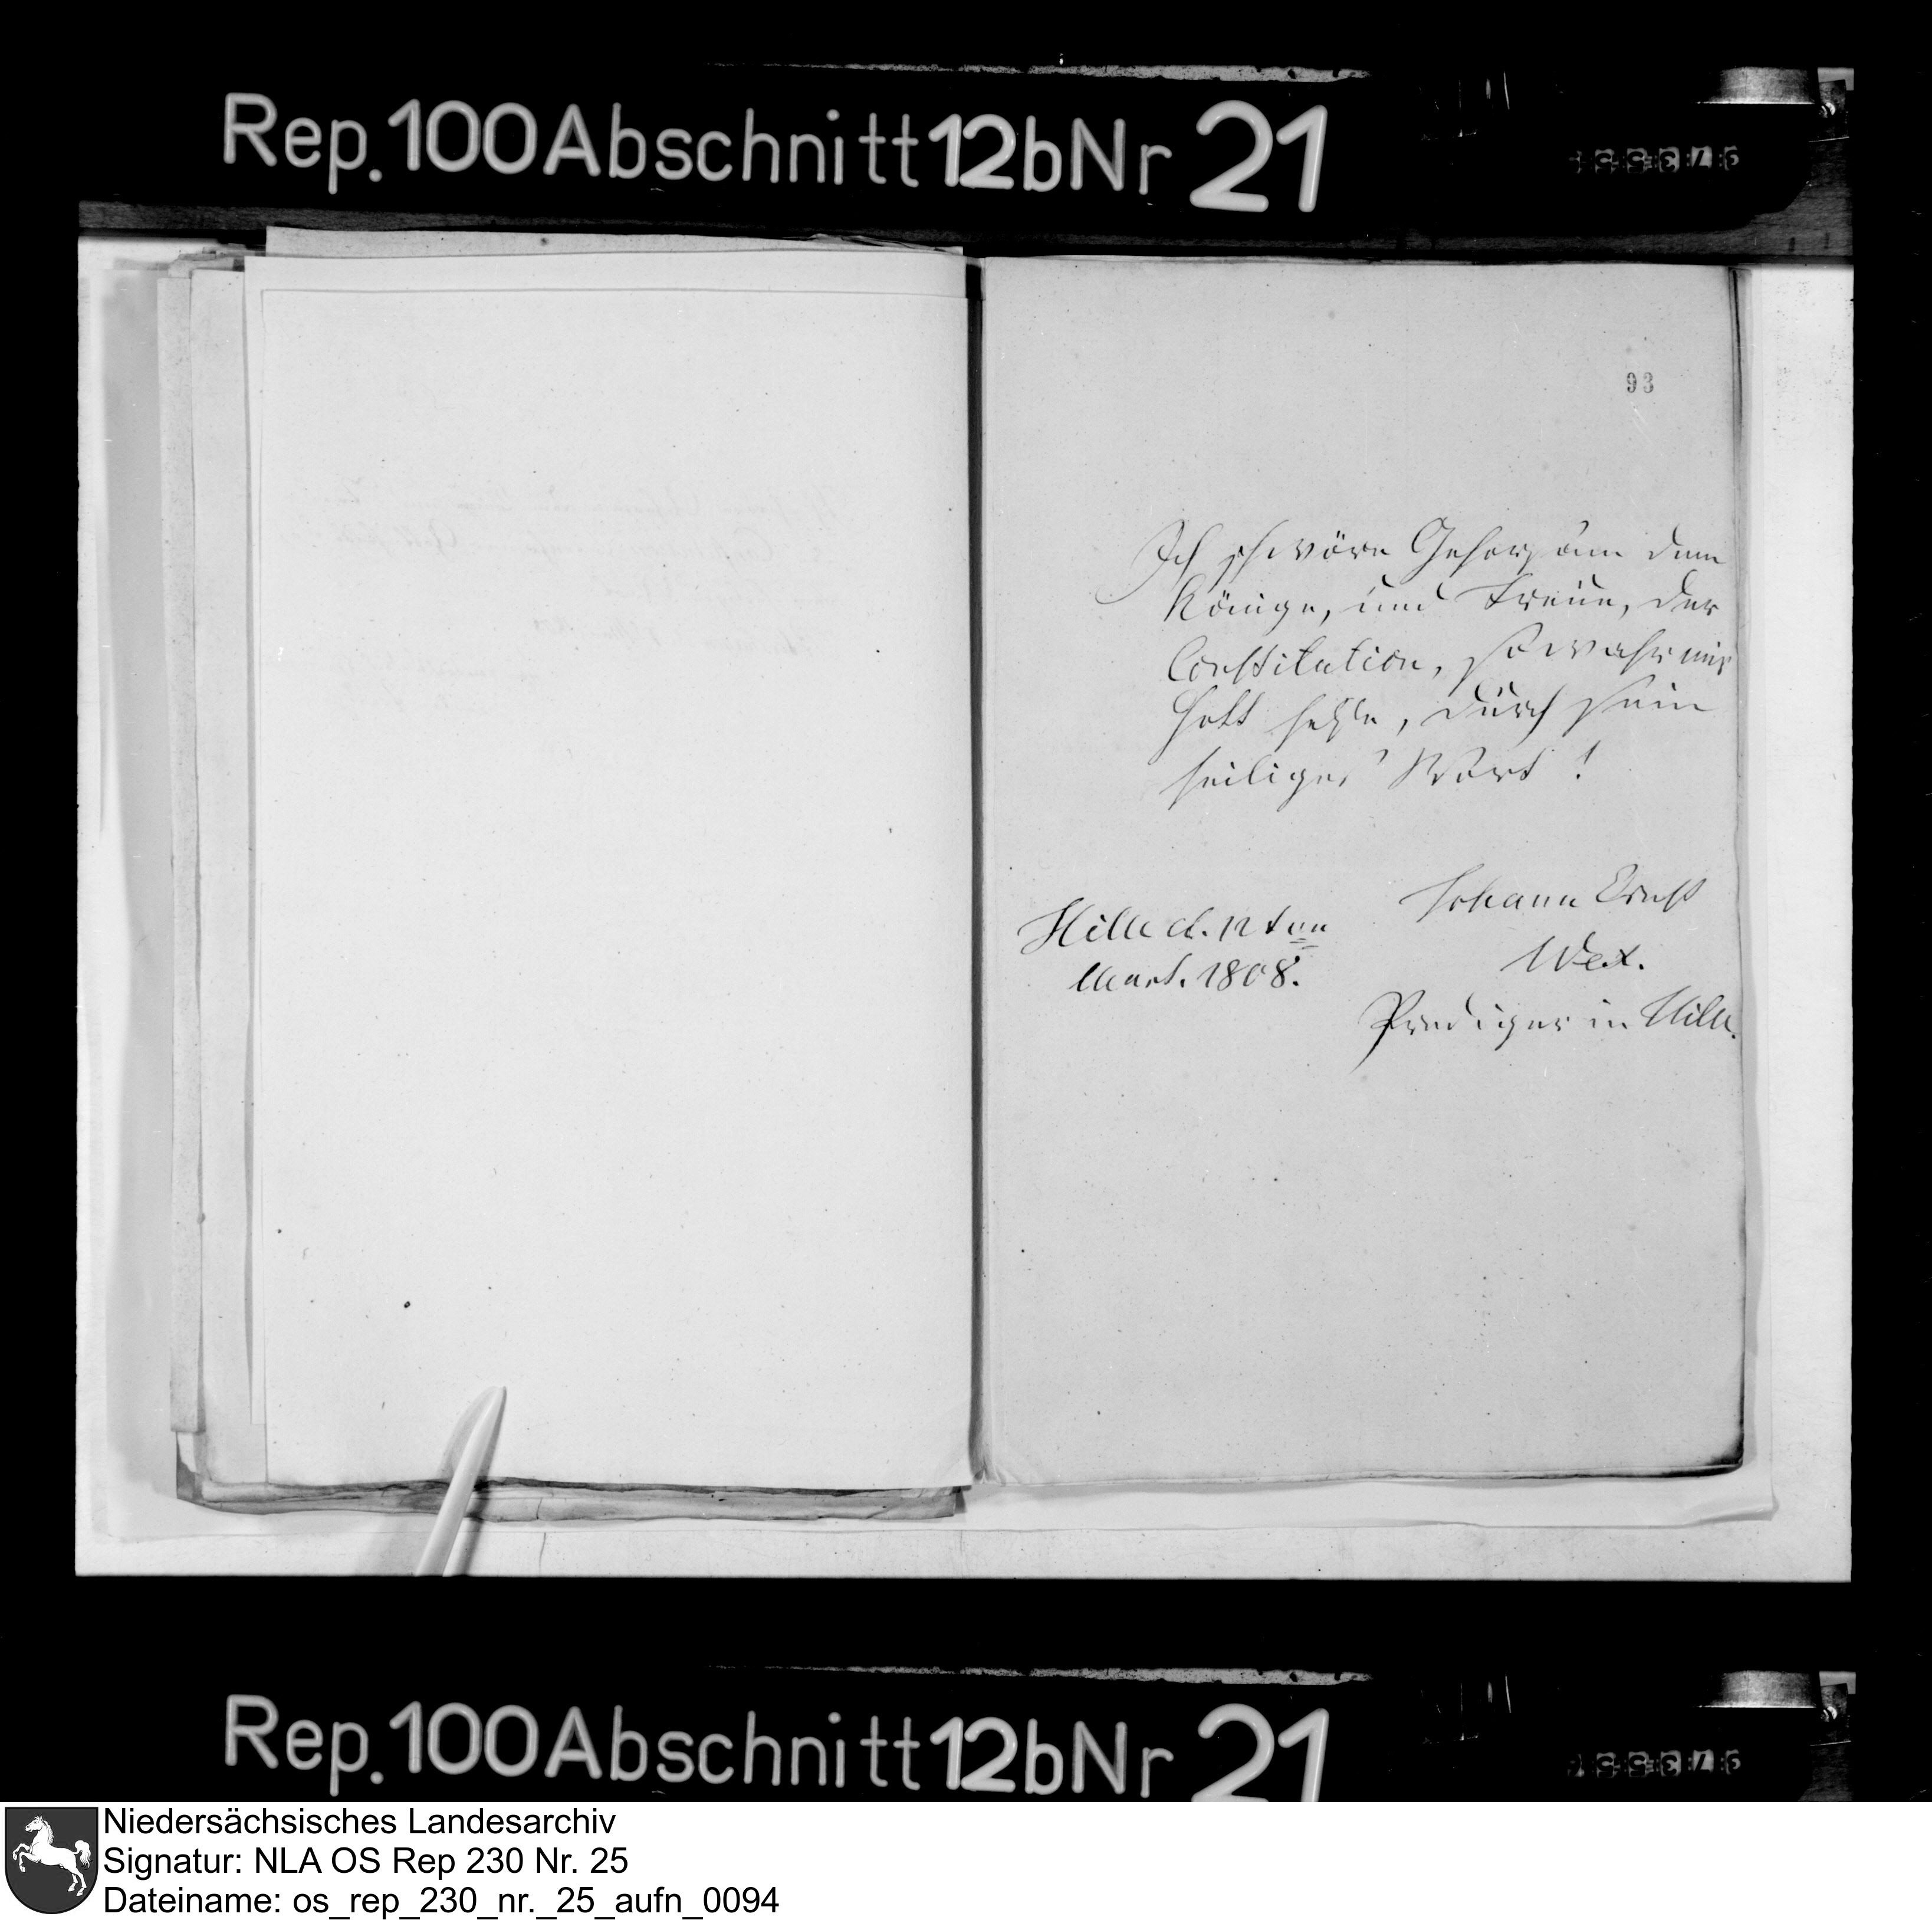 Rep. 100 Abschnitt 12b Nr 21
93
Ich schwöre Gehorsam dem
Könige, und Treue, der
Constitution, so wahr mir
Gott helfe, durch sein
heiliges Wort!
Johann Ernst
Hille d. 12ten
Mart. 1808.
Wex.
Prediger in Hille.
Rep. 100 Abschnitt 12b Nr 21
Niedersächsisches Landesarchiv
Signatur: NLA OS Rep 230 Nr. 25
Dateiname: os_rep_230_nr._25_aufn_0094